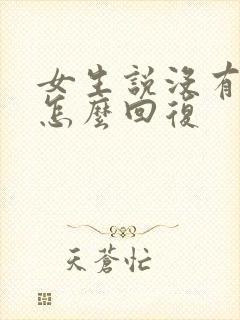 女生說沒有
怎麼回復
天蒼忙